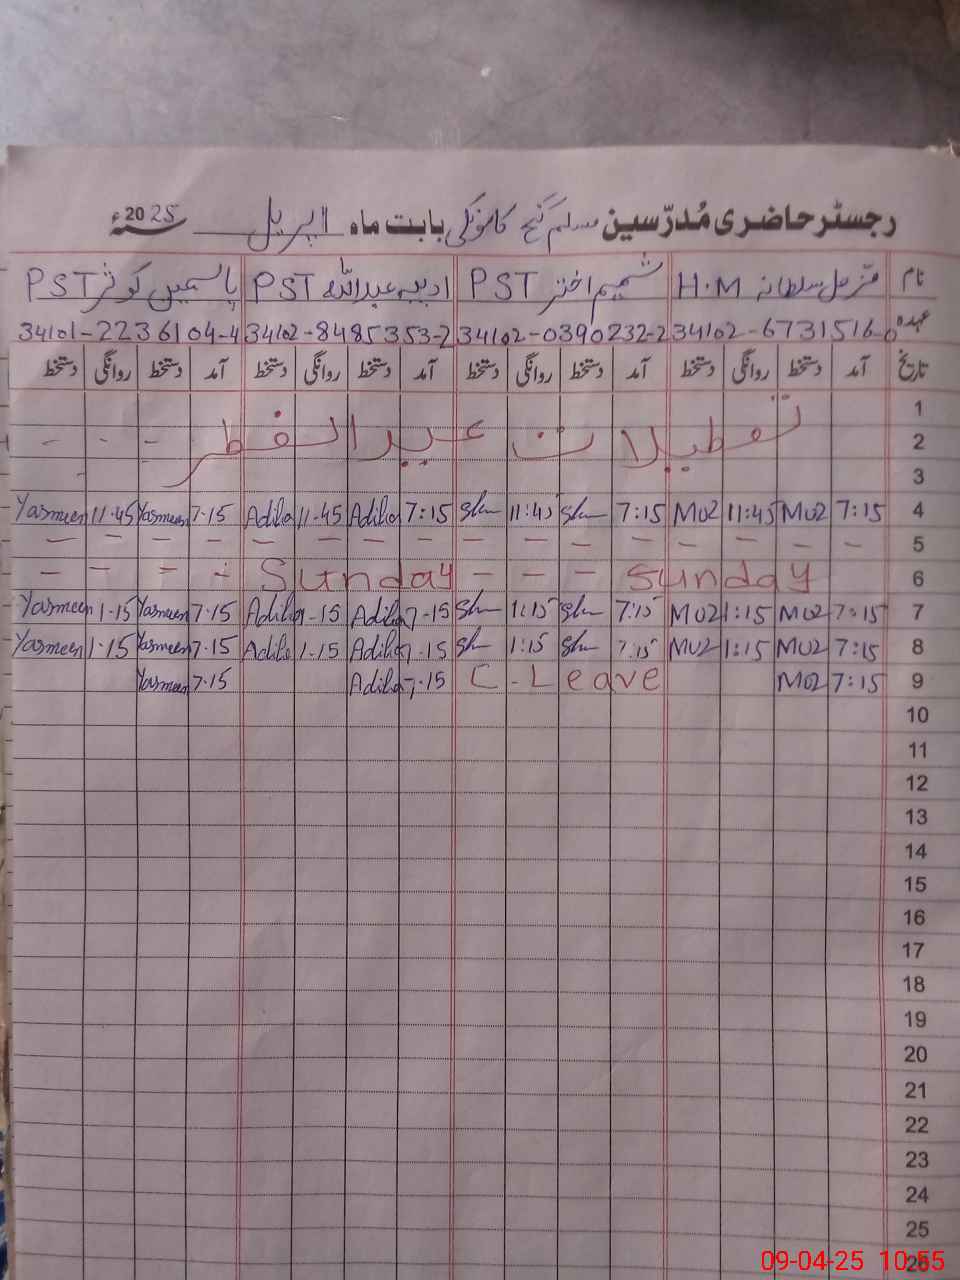 رجسٹر حاضری مُدرّسین مسلم گنج کامونکی بابت ماہ اپریل سنہ 2025ء
نام مزمل سلطانہ H.M شمیم اختر PST ادیبہ عبداللہ PST یاسمین کوثر PST
عہدہ 34102-6731516-0 34102-0390232-2 34102-8485353-2 34101-2236104-4
تاریخ آمد دستخط روانگی دستخط آمد دستخط روانگی دستخط آمد دستخط روانگی دستخط آمد دستخط روانگی دستخط
1
2 تعطیلات عید الفطر - - -
3 - -
4 7:15 Muz 11:45 Muz 7:15 11:45 7:15 Adiba 11.45 Adiba 7.15 Yasmeen 11.45 Yasmeen
5 - - - - - - - - - - - - - - -
6 Sunday - - - Sunday - - - -
7 7:15 Muz 1:15 Muz 7:15 1:15 7-15 Adiba 1-15 Adiba 7.15 Yasmeen 1-15 Yasmeen
8 7:15 Muz 1:15 Muz 7:15 1:15 7-15 Adiba 1.15 Adiba 7.15 Yasmeen 1.15 Yasmeen
9 7:15 Muz C-Leave 7-15 Adiba 7.15 Yasmeen
10
11
12
13
14
15
16
17
18
19
20
21
22
23
24
25
26
09-04-25 10:55